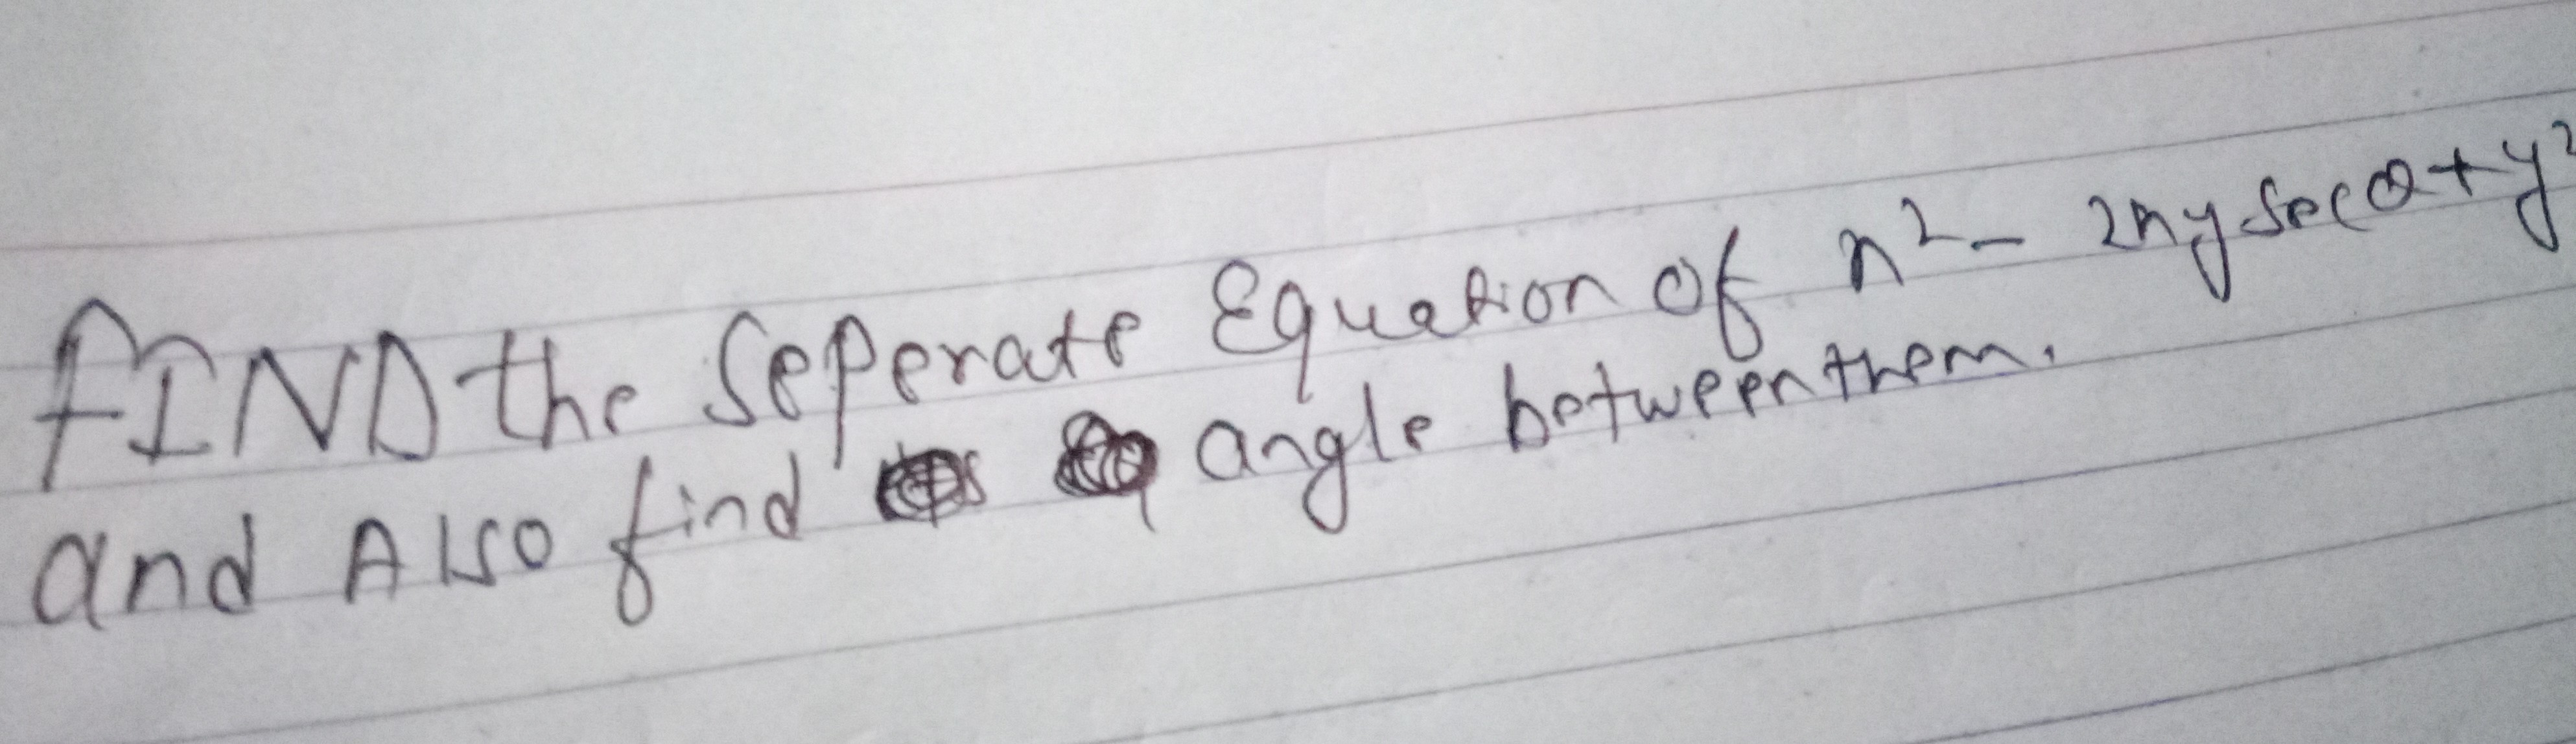 fIND the Seperate Equation of x² - 2xy Sec θ + y²
and Also find angle between them.